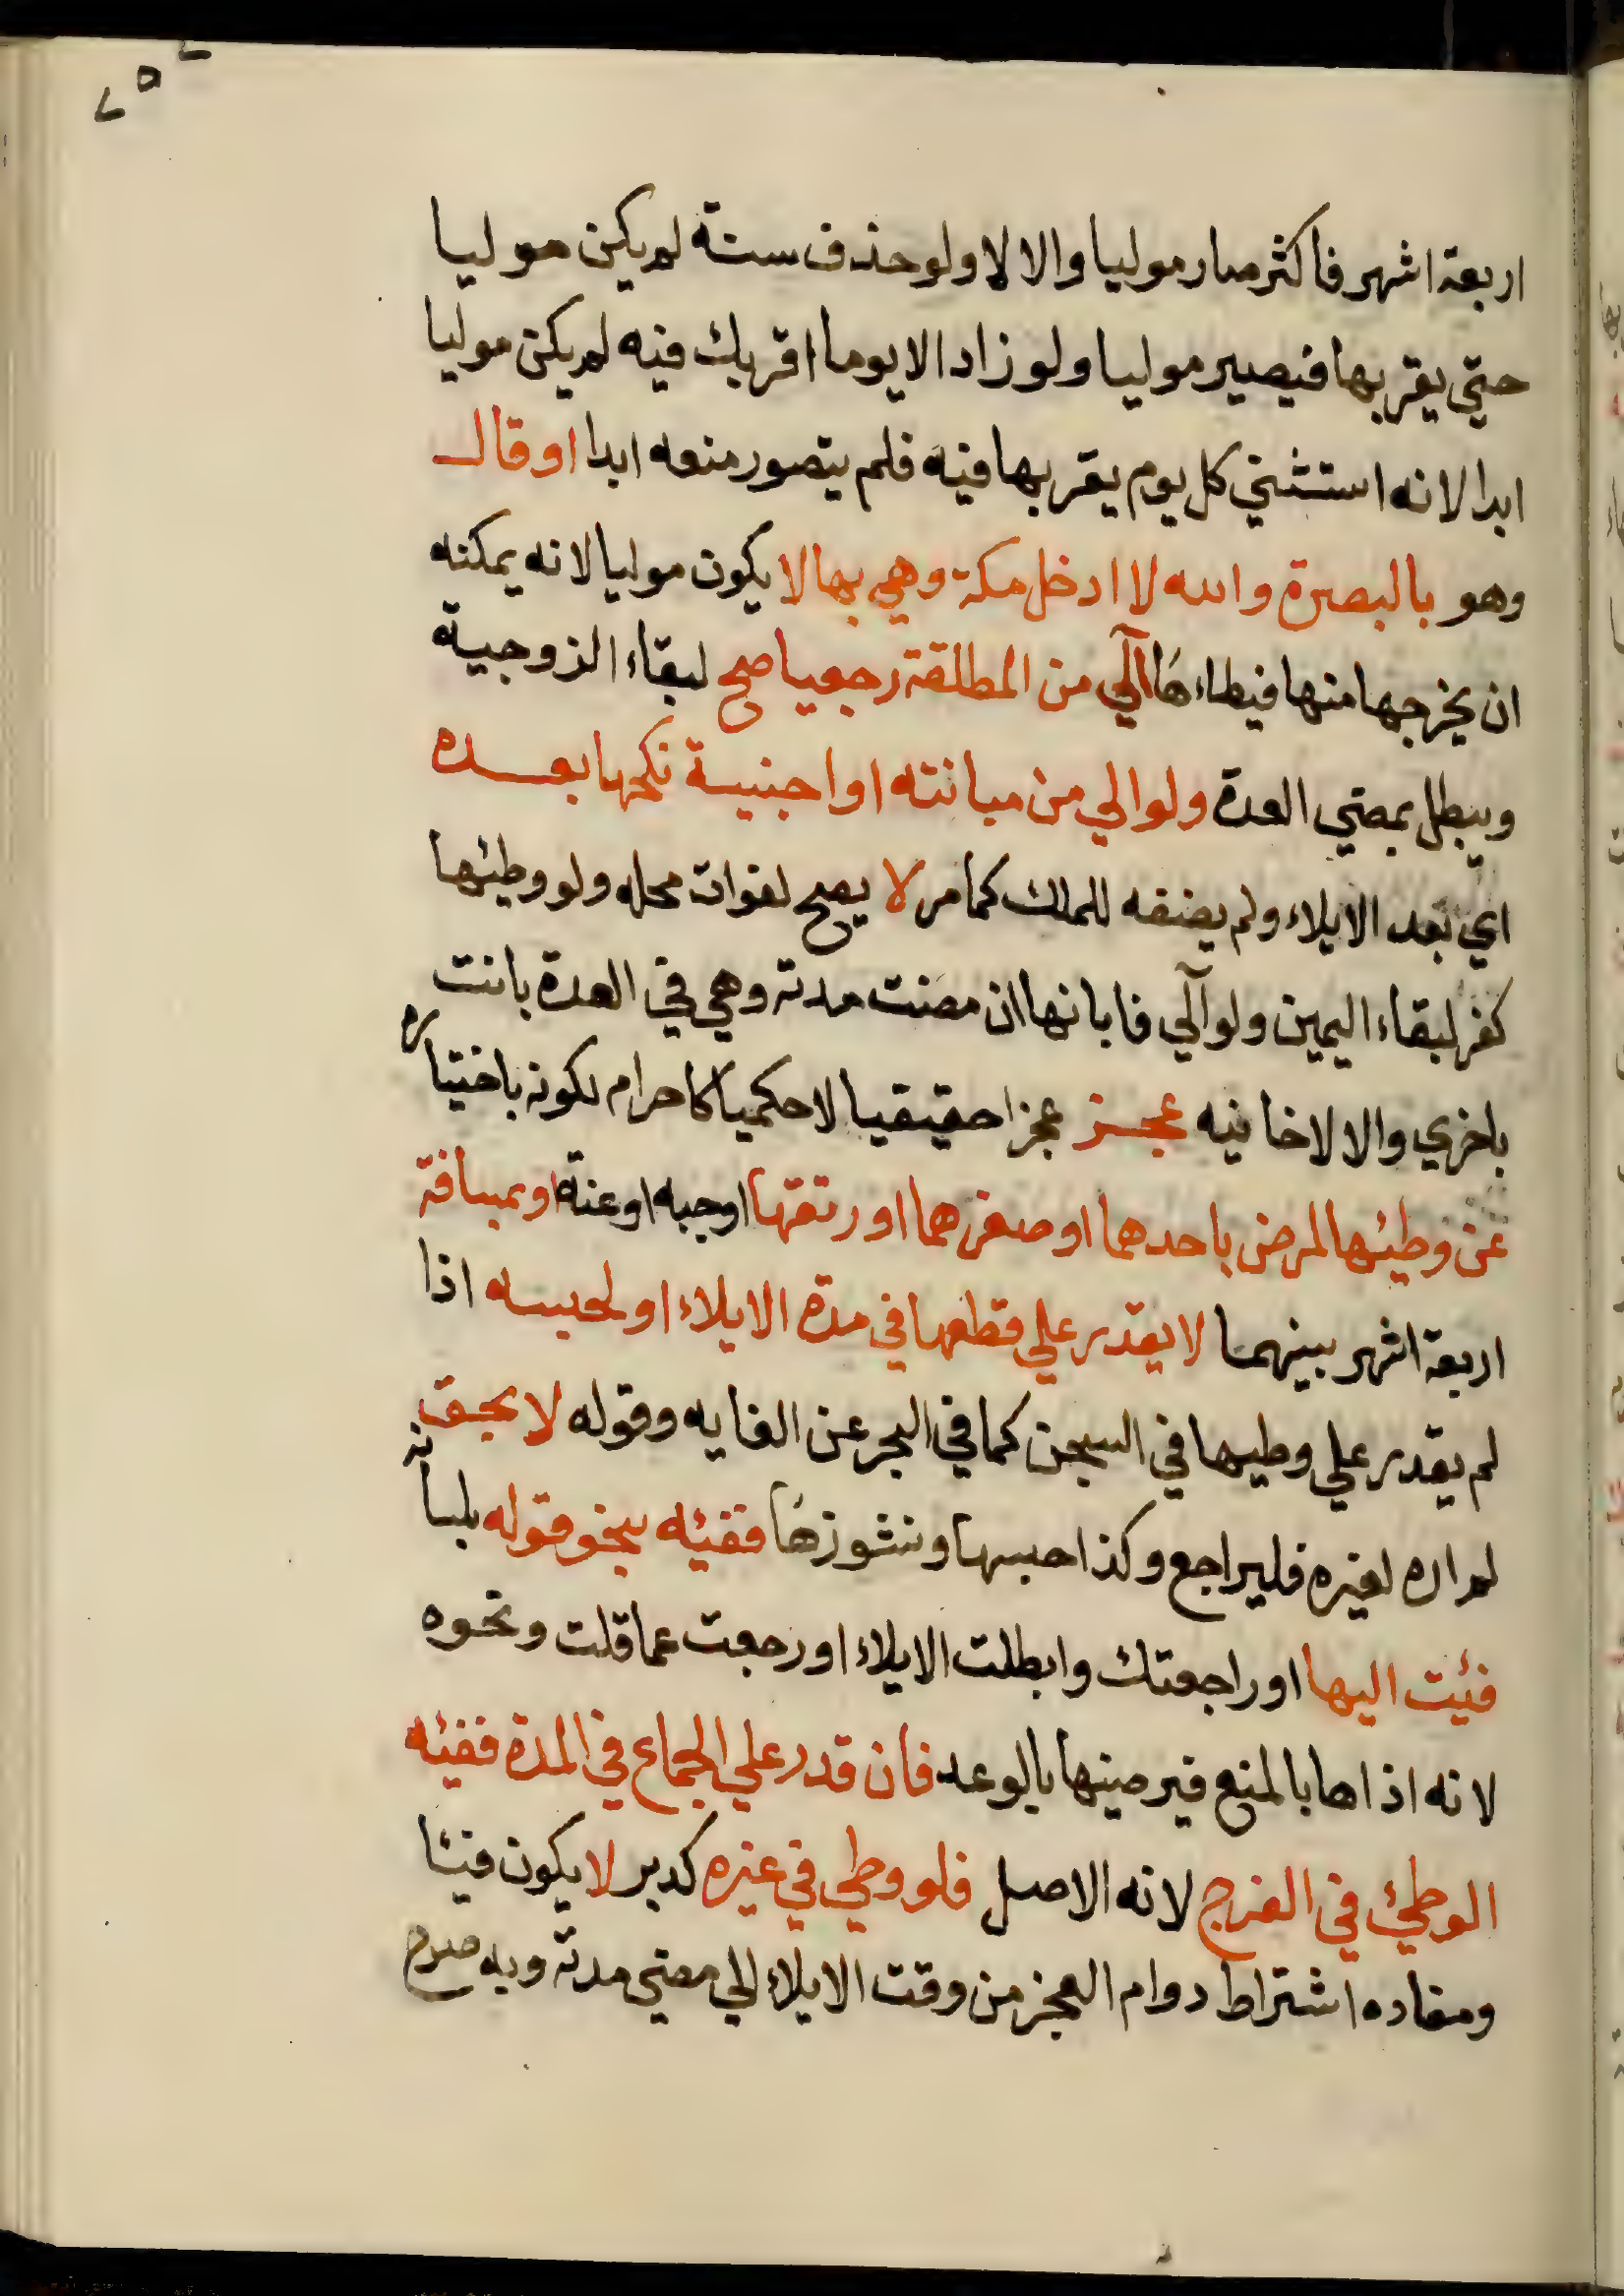 اربعة اشهر فاكثر صار موليا والا لا ولو حذف سنة لم يكن موليا
حتي يقربها فيصير موليا ولو زاد الا يوما اقربك فيه لم يكن موليا
ابدا لانه استثني كل يوم يقربها فيه فلم يتصور منعه ابدا او قال
وهو بالبصرة والله لا ادخل مكة وهي بها لا يكون موليا لانه يمكنه
ان يخرجها منها فيطاءها آلي من المطلقة رجعيا صح لبقاء الزوجية
ويبطل بمضي العدة ولو الي من مبانته او اجنبية نكحها بعده
اي بعد الايلاء ولم يضفه للملك كما مر لا يصح لفوات محله ولو وطئها
كفر لبقاء اليمين ولو آلي فابانها ان مضت مدته وهي في العدة بانت
باخري والا لا خانيه عجز عجزا حقيقيا لا حكميا كاحرام لكونه باختياره
عن وطئها لمرض باحدهما او صغرهما او رتقها او جبه او عنة او بمسافة
اربعة اشهر بينهما لا يقدر علي قطعها في مدة الايلاء او لحبسه اذا
لم يقدر علي وطيها في السجن كما في البحر عن الغايه وقوله لا بحق
لم اره لغيره فليراجع وكذا حبسها ونشوزها ففيئه بنحو قوله بلسانه
فئت اليها او راجعتك وابطلت الايلاء او رجعت عما قلت ونحوه
لانه اذاها بالمنع فيرضيها بالوعد فان قدر علي الجماع في المدة ففيئه
الوطئ في الفرج لانه الاصل فلو وطي في غيره كدبر لا يكون فيئا
ومفاده اشتراط دوام العجز من وقت الايلاء الي مضي مدته وبه صرح